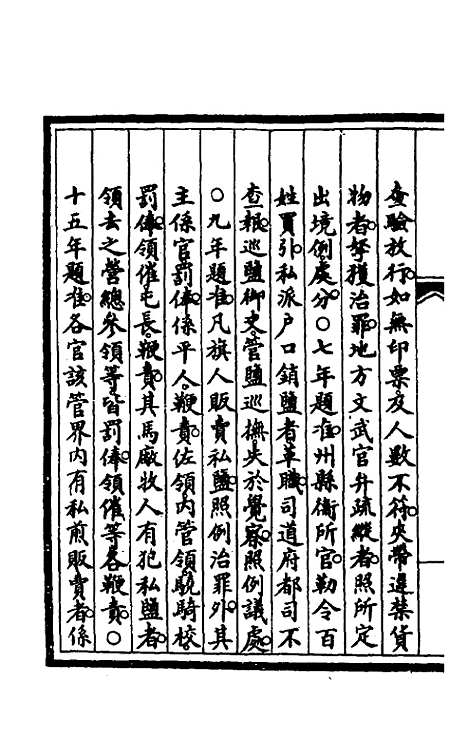 查驗放行如無印票及人數不符夾帶違禁貨
物者拏獲治罪地方文武官弁疏縱者照所定
出境例處分○七年題准州縣衛所官勒令百
姓買引私派戶口銷鹽者革職司道府都司不
查報巡鹽御史管鹽巡撫失於覺察照例議處
○九年題准凡旗人販賣私鹽照例治罪外其
主係官罰俸係平人鞭責佐領內管領驍騎校
罰俸領催屯長鞭責其馬厰牧人有犯私鹽者
領去之營總參領等皆罰俸領催等各鞭責○
十五年題准各官該管界內有私煎販賣者係